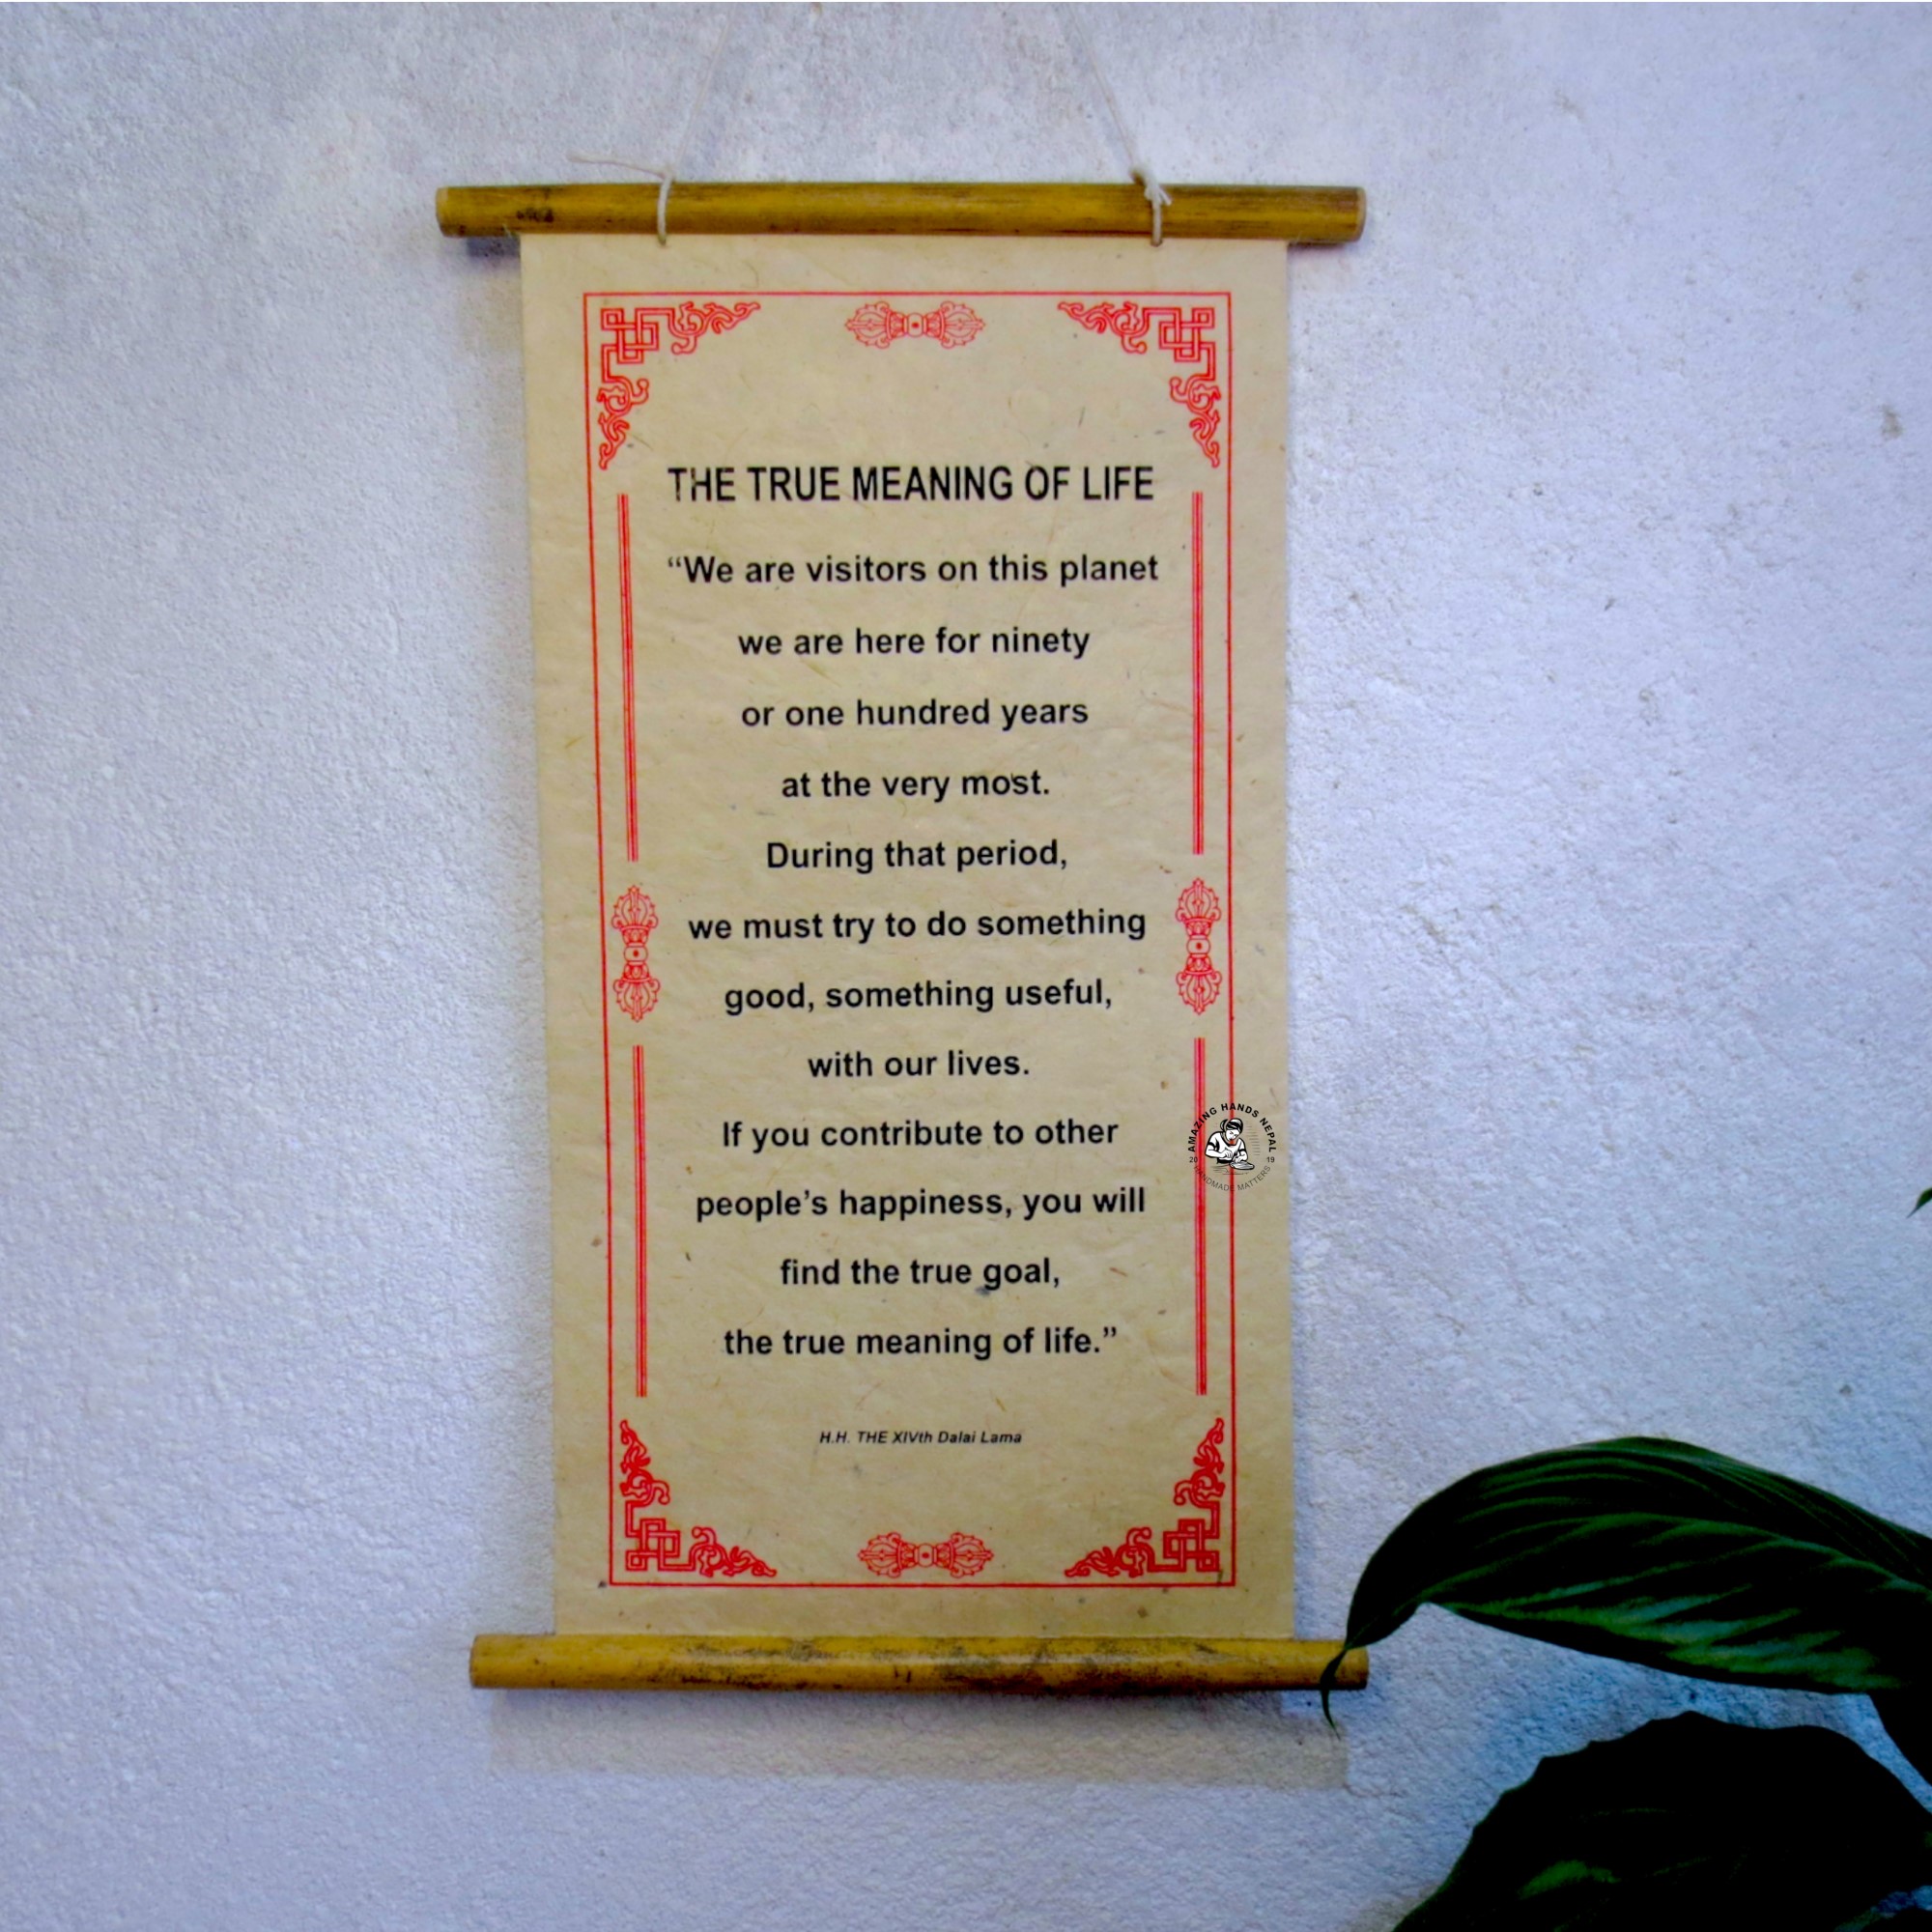 THE TRUE MEANING OF LIFE
“We are visitors on this planet
we are here for ninety
or one hundred years
at the very most.
During that period,
we must try to do something
good, something useful,
with our lives.
If you contribute to other
people’s happiness, you will
find the true goal,
the true meaning of life.”
H.H. THE XIVth Dalai Lama
AMAZING HANDS NEPAL
20 19
HANDMADE MATTERS